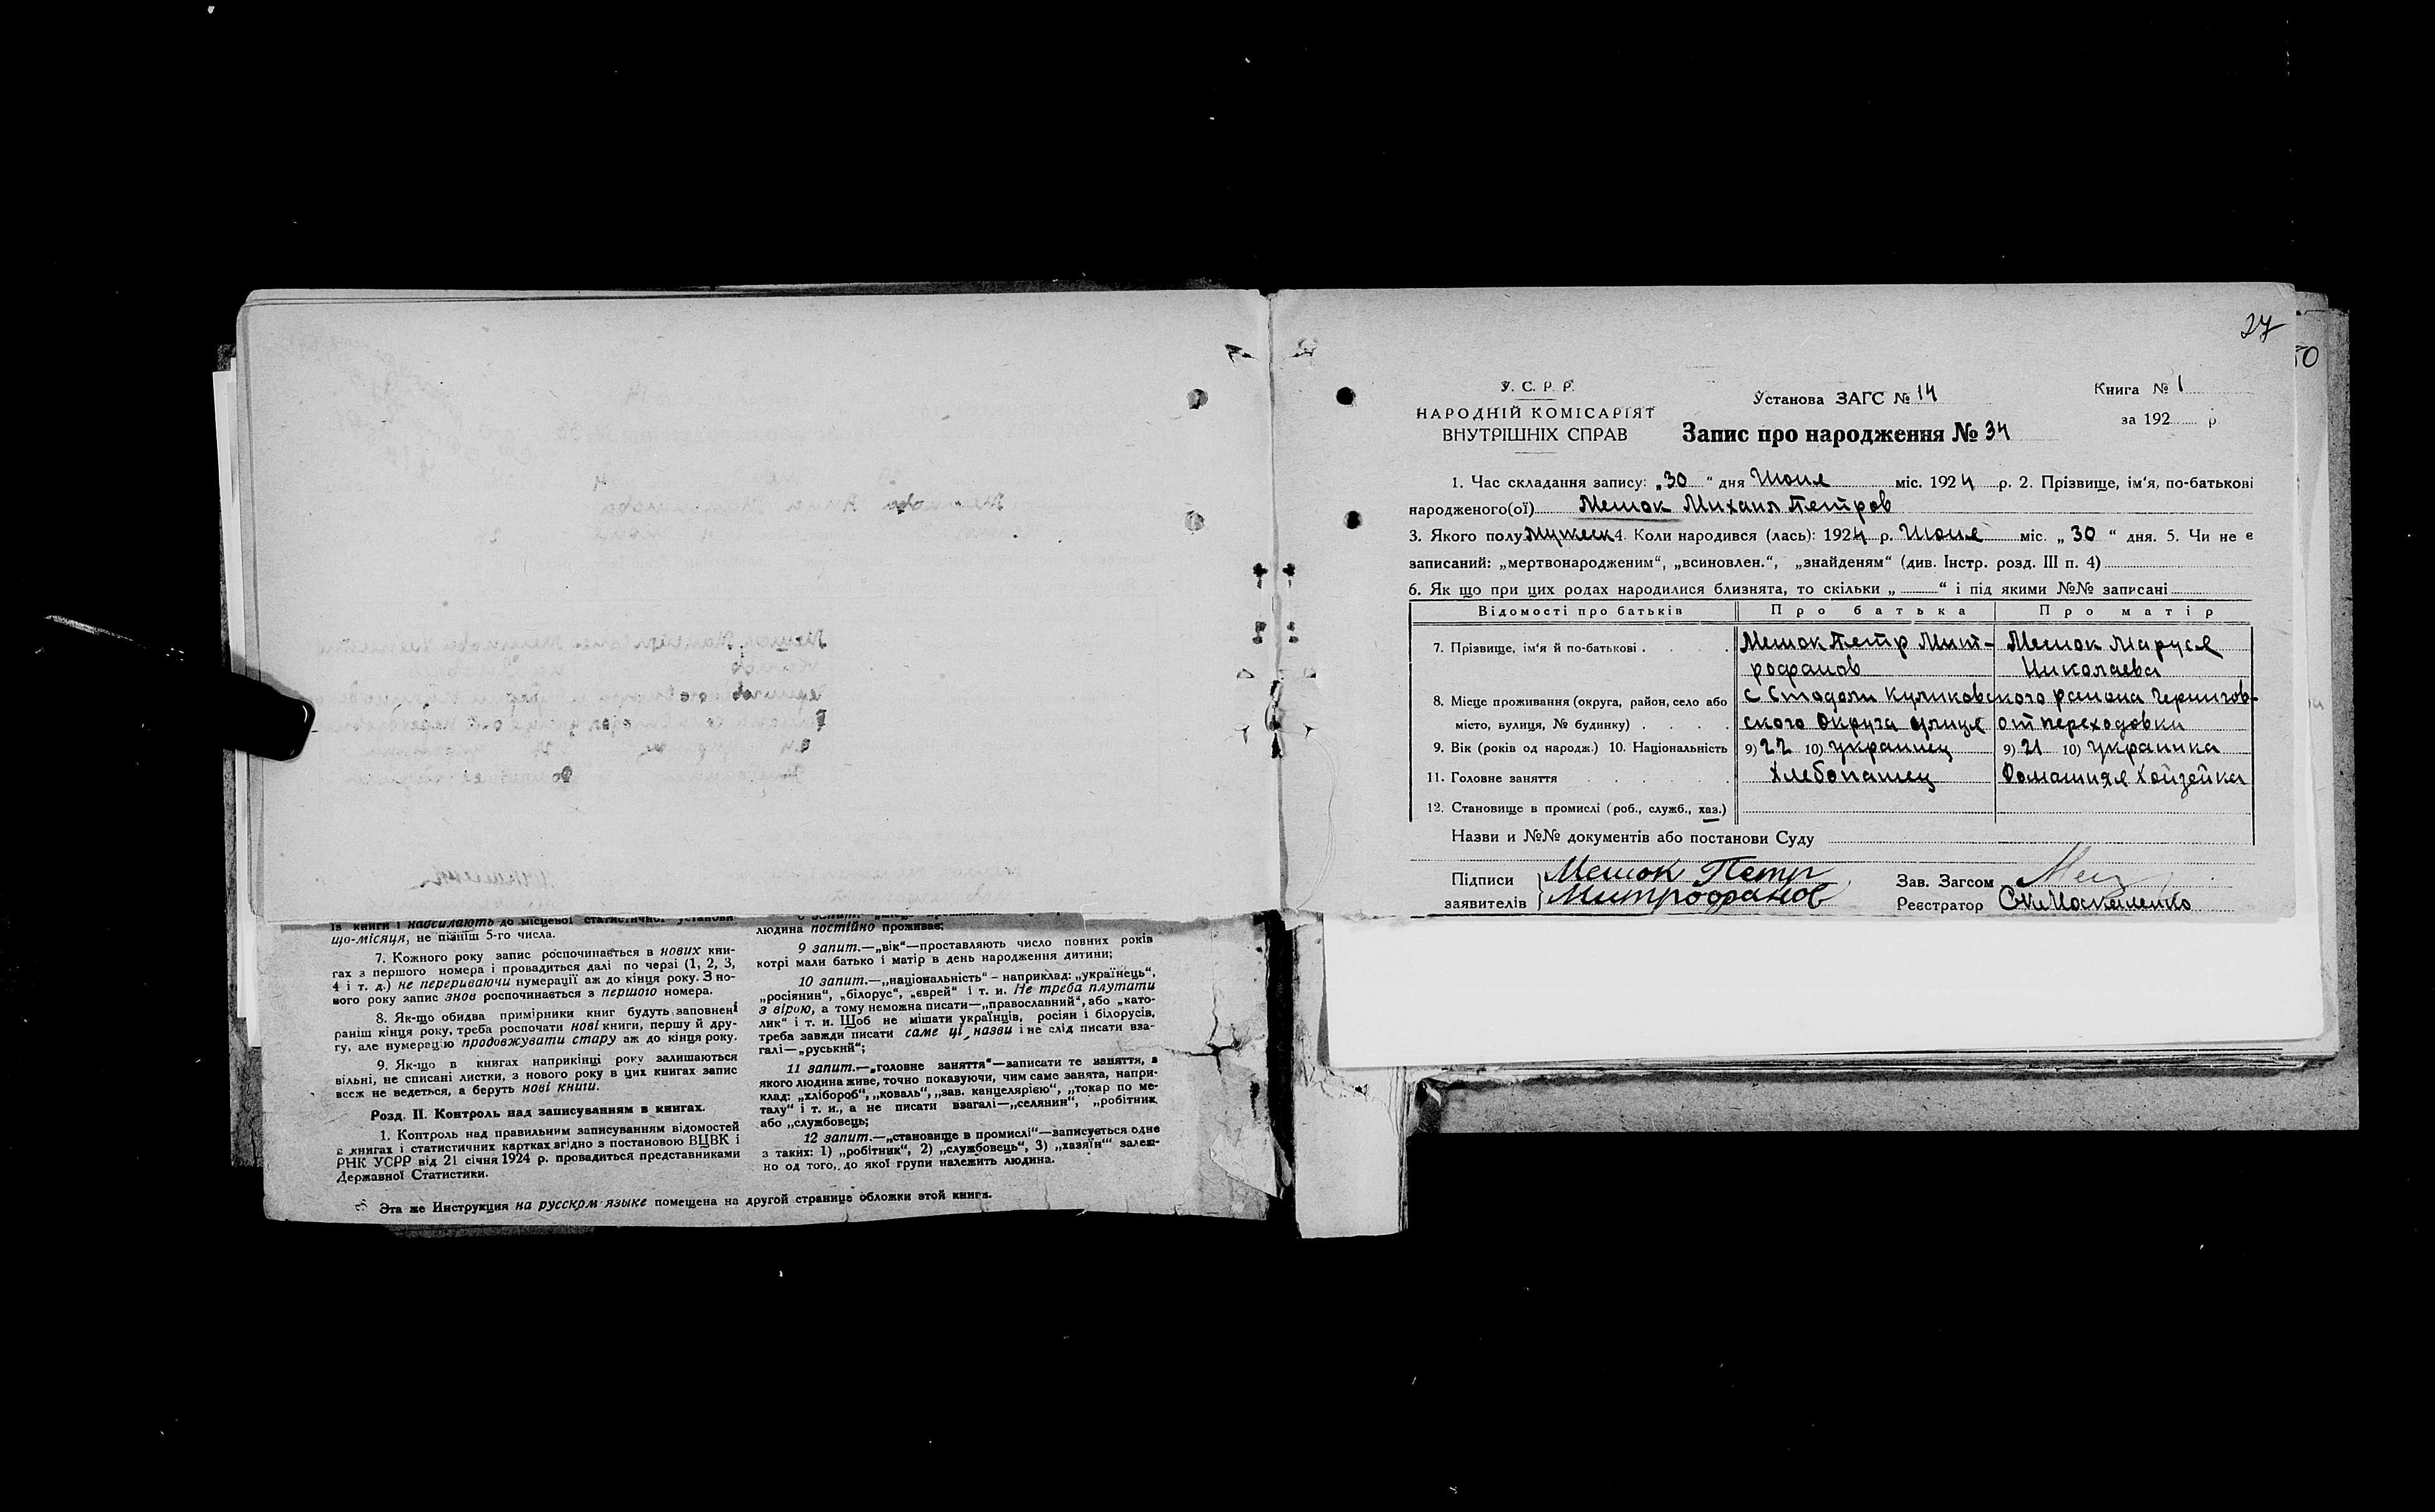 із книги і надсилають до місцевої статистичної установи
що-місяця, не пізніш 5-го числа.
7. Кожного року запис роспочинається в нових кни-
гах з першого номера і провадиться далі по черзі (1, 2, 3,
4 і т. д.) не перериваючи нумерації аж до кінця року. З но-
вого року запис знов роспочинається з першого номера.
8. Як-що обидва примірники книг будуть заповнені
раніш кінця року, треба роспочати нові книги, першу й дру-
гу, але нумерацію продовжувати стару аж до кінця року.
9. Як-що в книгах наприкінці року залишаються
вільні, не списані листки, з нового року в цих книгах запис
всеж не ведеться, а беруть нові книги.
Розд. II. Контроль над записуванням в книгах.
1. Контроль над правильним записуванням відомостей
в книгах і статистичних картках згідно з постановою ВЦВК і
РНК УСРР від 21 січня 1924 р. провадиться представниками
Державної Статистики.
людина постійно проживає;
9 запит.—„вік“—проставляють число повних років
котрі мали батько і матір в день народження дитини;
10 запит.—„національність“ – наприклад: „українець“,
„росіянин“, „білорус“, „єврей“ і т. и. Не треба плутати
з вірою, а тому неможна писати—„православний“, або „като-
лик“ і т. и. Щоб не мішати українців, росіян і білорусів,
треба завжди писати саме ці назви і не слід писати вза-
галі—„руський“;
11 запит.—„головне заняття“—записати те заняття, з
якого людина живе, точно показуючи, чим саме занята, напри-
клад: „хлібороб“, „коваль“, „зав. канцелярією“, „токар по ме-
талу“ і т. и., а не писати взагалі—„селянин“, „робітник
або „службовець;
12 запит.—„становище в промислі“—записується одне
з таких: 1) „робітник“, 2) „службовець“, 3) „хазяїн“ залеж-
но од того, до якої групи належить людина.
Эта же Инструкция на русском языке помещена на другой странице обложки этой книги.
27
50
У. С. Р. Р.
НАРОДНІЙ КОМІСАРІЯТ
ВНУТРІШНІХ СПРАВ
Установа ЗАГС № 14
Запис про народження № 34
Книга № 1
за 192 р.
1. Час складання запису: „30“ дня Июня міс. 1924 р. 2. Прізвище, ім'я, по-батькові
народженого(ої) Мешок Михаил Петров
3. Якого полу Мужеск 4. Коли народився (лась): 1924 р. Июня міс. „30“ дня. 5. Чи не є
записаний: „мертвонародженим“, „всиновлен.“, „знайденям“ (див. Інстр. розд. III п. 4)
6. Як що при цих родах народилися близнята, то скільки „ “ і під якими №№ записані
Відомості про батьків Про батька Про матір
7. Прізвище, ім'я й по-батькові Мешок Петр Мит- Мешок Маруся
рофанов Николаева
8. Місце проживання (округа, район, село або с Стодоли Куликовского раиона Чернигов-
місто, вулиця, № будинку) ского Округа улиця от переходовки
9. Вік (років од народж.) 10. Національність 9) 22 10) украинец 9) 21 10) украинка
11. Головне заняття Хлебопашец Домашняя Хойзейка
12. Становище в промислі (роб., служб., хаз.)
Назви и №№ документів або постанови Суду
Підписи Мешок Петр
заявителів Митрофанов
Зав. Загсом
Реєстратор